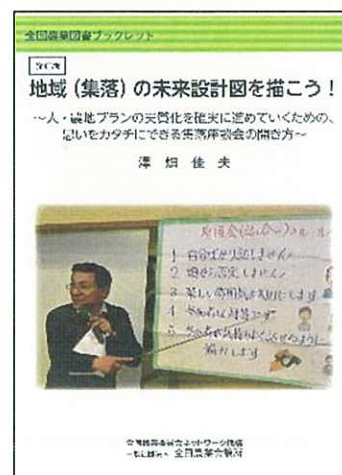 全国農業図書ブックレット
改訂版
地域（集落）の未来設計図を描こう！
～人・農地プランの実質化を確実に進めていくための、
思いをカタチにできる集落座談会の開き方～
澤畑佳夫
1 自分ばかり話しません
2 頭から否定しません
3 楽しい雰囲気を大切にします
全国農業委員会ネットワーク機構
一般社団法人 全国農業会議所